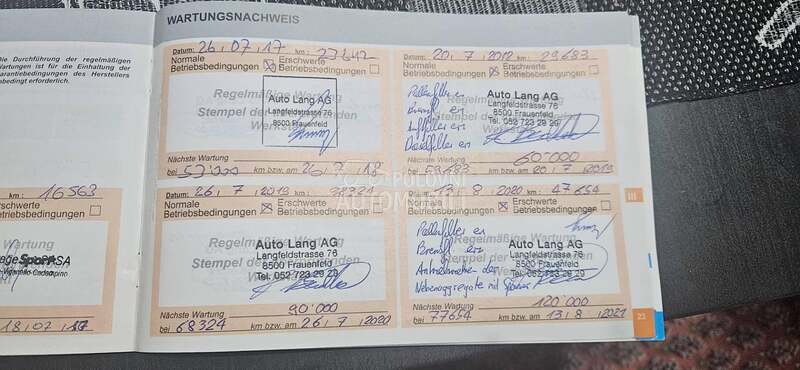 WARTUNGSNACHWEIS
Die Durchführung der regelmäßigen
Wartungen ist für die Einhaltung der
Garantiebedingungen des Herstellers
unbedingt erforderlich.
km: 16563
18,07,
Datum: 26,07,17 km: 27642
Normale Betriebsbedingungen ☒ Erschwerte Betriebsbedingungen ☐
Regelmäßige Wartung
Stempel der
Auto Lang AG
Langfeldstrasse 76
8500 Frauenfeld
Nächste Wartung
bei 57'000 km bzw. am 26, 7, 18
Datum: 20, 7, 2018 km: 29683
Normale Betriebsbedingungen ☒ Erschwerte Betriebsbedingungen ☐
Pollenfilter er
Bremsfl er
Luftfilter er
Auto Lang AG
Langfeldstrasse 76
8500 Frauenfeld
Tel. 052 723 29 29
Nächste Wartung 60'000
bei 59683 km bzw. am 20, 7, 2019
POLOVNI
AUTOMOBILI
Datum: 26, 7, 2019 km: 38324
Normale Betriebsbedingungen ☒ Erschwerte Betriebsbedingungen ☐
Regelmäßige Wartung
Stempel der
Auto Lang AG
Langfeldstrasse 76
8500 Frauenfeld
Tel. 052 723 29 29
Nächste Wartung 90'000
bei 68324 km bzw. am 26, 7, 2020
Datum: 13, 8, 2020 km: 47654
Normale Betriebsbedingungen ☒ Erschwerte Betriebsbedingungen ☐
Pollenfilter er
Bremsfl er
Antriebsriemen der
Nebenaggregate mit Spanner
Auto Lang AG
Langfeldstrasse 76
8500 Frauenfeld
Tel. 052 723 29 29
Nächste Wartung 120'000
bei 77654 km bzw. am 13, 8, 2021
III
23